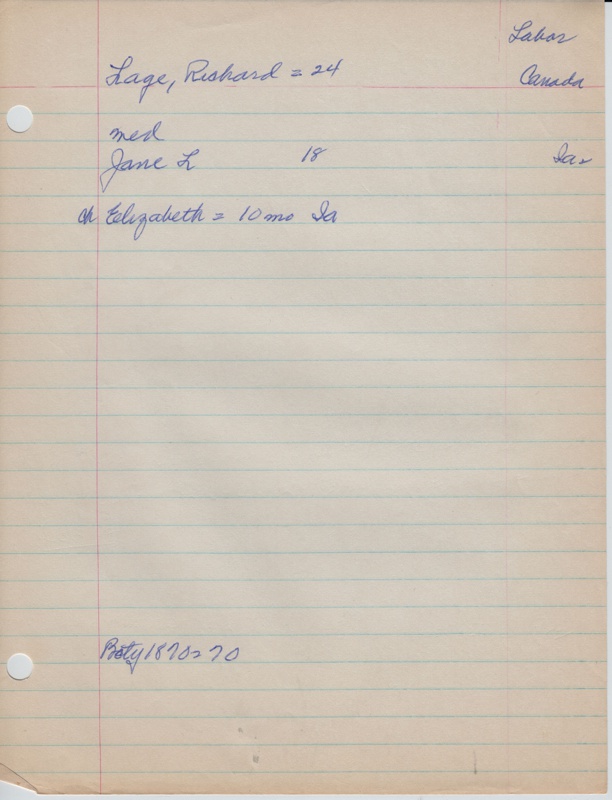 Labor
Lage, Richard = 24 Canada
med
Jane L 18 Ia.
ch Elizabeth = 10 mo Ia
1870 = 70